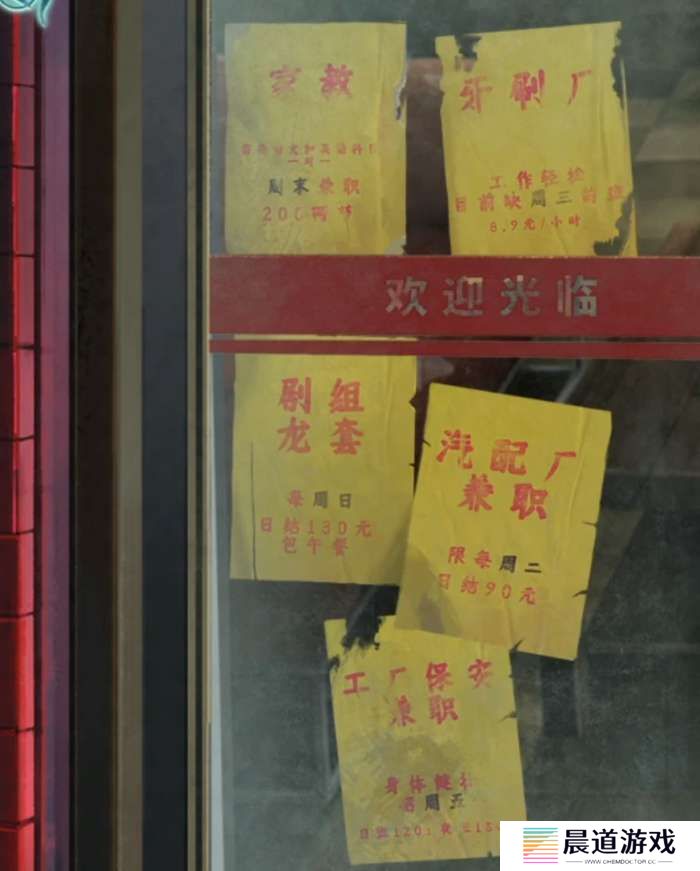 家教
一对一
周末兼职
牙刷厂
工作轻松
目前缺周三前班
8.9元/小时
欢迎光临
剧组
龙套
每周日
日结130元
包午餐
汽配厂
兼职
限每周二
日结90元
工厂保安
兼职
身体健壮
周五
晨道游戏
WWW.CHEMDOCTOR.CC